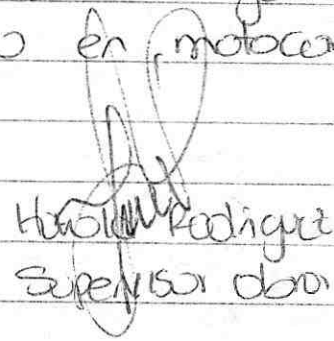 o en motocar
Rodriguez
Supervisor obra